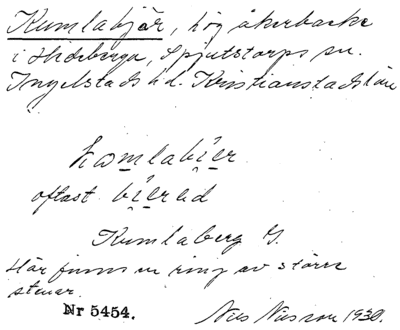 Kumlabjär, hög åkerbacke
i Hideberga, Spjutstorps sn.
Ingelstads hd. Kristianstads län
oftast
Kumlaberg G.
Här finns en ring av större
stenar.
Nr 5454. Nils Nilsson 1930.